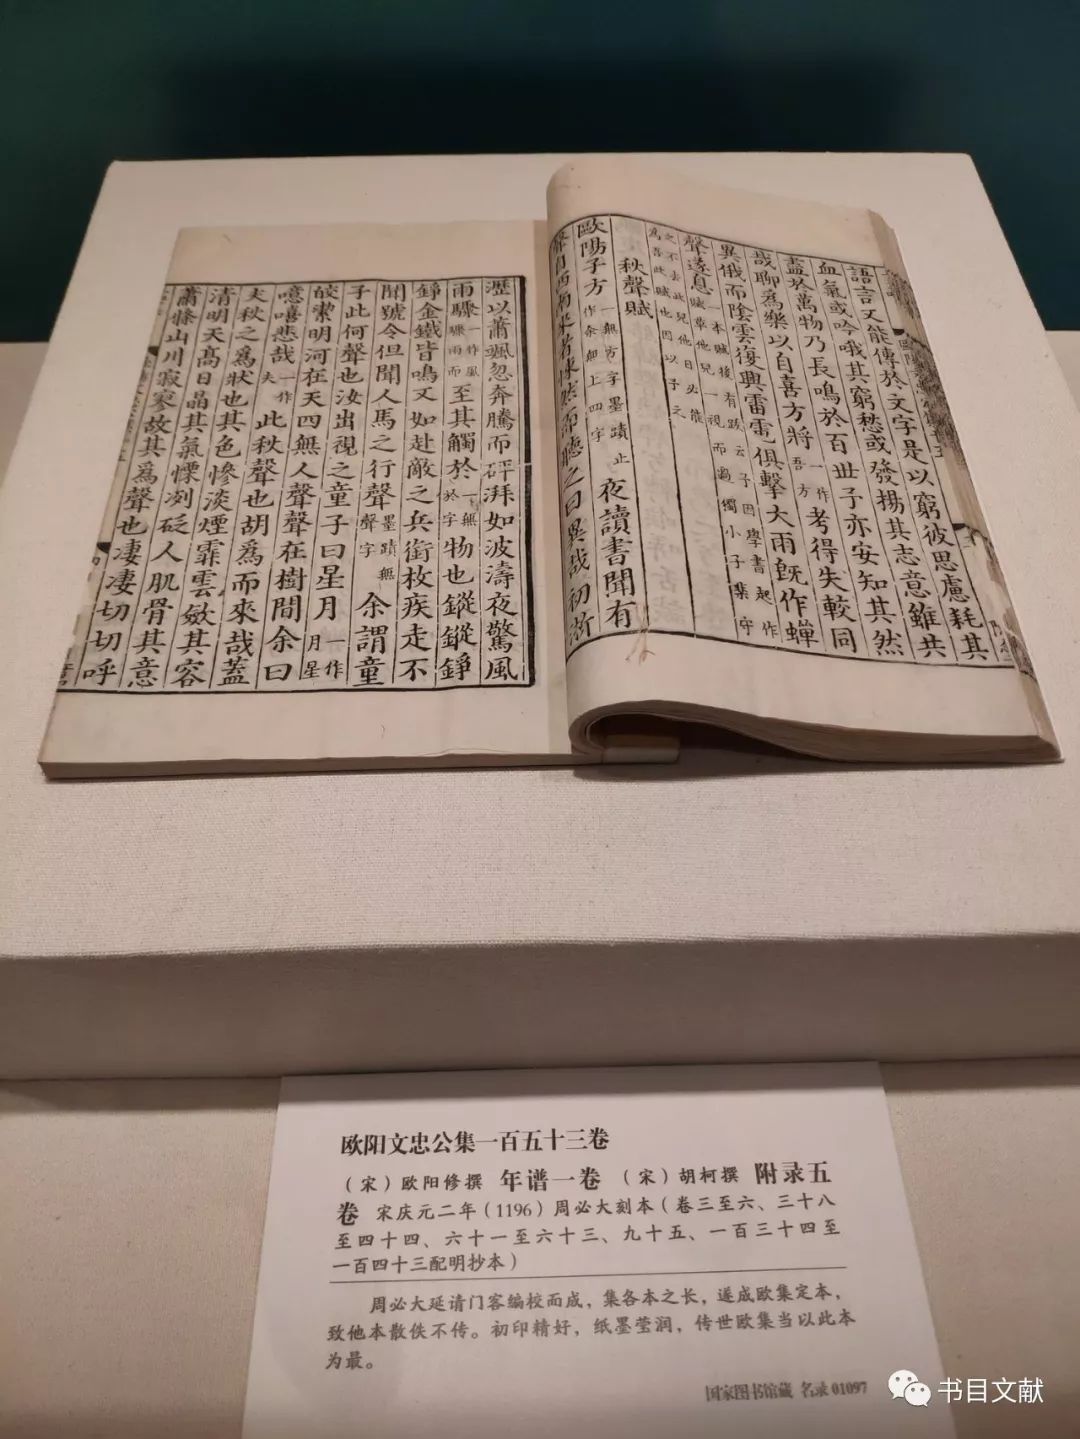 語言又能傳於文字是以窮彼思慮耗其
血氣或吟哦其窮愁或發揚其志意雖共
盡於萬物乃長鳴於百世予亦安知其然
哉聊爲樂以自喜方將一作吾方考得失較同
異俄而陰雲復興雷電俱擊大雨旣作蟬
聲遂息一本賦後有跋云予因學書起作賦草他兒一視而過獨小子棐守
之不去此兒他日必能爲吾此賦也因以予之
秋聲賦
歐陽子方一無方字墨蹟止作余無上四字夜讀書聞有
聲自西南來者悚然而聽之曰異哉初淅
瀝以蕭颯忽奔騰而砰湃如波濤夜驚風
雨驟一作風雨驟而至其觸於一無於字物也鏦鏦錚
錚金鐵皆鳴又如赴敵之兵銜枚疾走不
聞號令但聞人馬之行聲墨蹟無聲字余謂童
子此何聲也汝出視之童子曰星月一作月星
皎潔明河在天四無人聲聲在樹間余曰
噫嘻悲哉一作夫此秋聲也胡爲而來哉蓋
夫秋之爲狀也其色慘淡煙霏雲斂其容
清明天高日晶其氣慄冽砭人肌骨其意
蕭條山川寂寥故其爲聲也淒淒切切呼
欧阳文忠公集一百五十三卷
（宋）欧阳修撰 年谱一卷 （宋）胡柯撰 附录五
卷 宋庆元二年（1196）周必大刻本（卷三至六、三十八
至四十四、六十一至六十三、九十五、一百三十四至
一百四十三配明抄本）
周必大延请门客编校而成，集各本之长，遂成欧集定本，
致他本散佚不传。初印精好，纸墨莹润，传世欧集当以此本
为最。
国家图书馆藏 名录 01097
书目文献